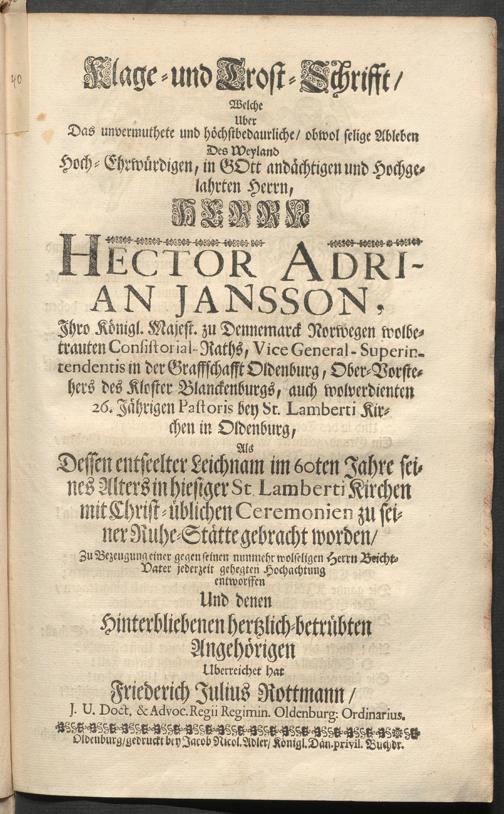 40
Klage- und Trost-Schrifft/
Welche
Uber
Das unvermuthete und höchstbedaurliche/ obwol selige Ableben
Des Weyland
Hoch-Ehrwürdigen, in GOtt andächtigen und Hochge-
lahrten Herrn,
HERRN
HECTOR ADRI-
AN JANSSON,
Ihro Königl. Majest. zu Dennemarck Norwegen wolbe-
trauten Consistorial-Raths, Vice General-Superin-
tendentis in der Graffschafft Oldenburg, Ober-Vorste-
hers des Kloster Blanckenburgs, auch wolverdienten
26. Jährigen Pastoris bey St. Lamberti Kir-
chen in Oldenburg,
Als
Dessen entseelter Leichnam im 60ten Jahre sei-
nes Alters in hiesiger St. Lamberti Kirchen
mit Christ-üblichen Ceremonien zu sei-
ner Ruhe-Stätte gebracht worden/
Zu Bezeugung einer gegen seinen nunmehr wolseligen Herrn Beicht-
Vater jederzeit gehegten Hochachtung
entworffen
Und denen
Hinterbliebenen hertzlich-betrübten
Angehörigen
Uberreichet hat
Friederich Julius Rottmann/
J. U. Doct. & Advoc. Regii Regimin. Oldenburg: Ordinarius.
Oldenburg/ gedruckt bey Jacob Nicol. Adler/ Königl. Dän. privil. Buchdr.